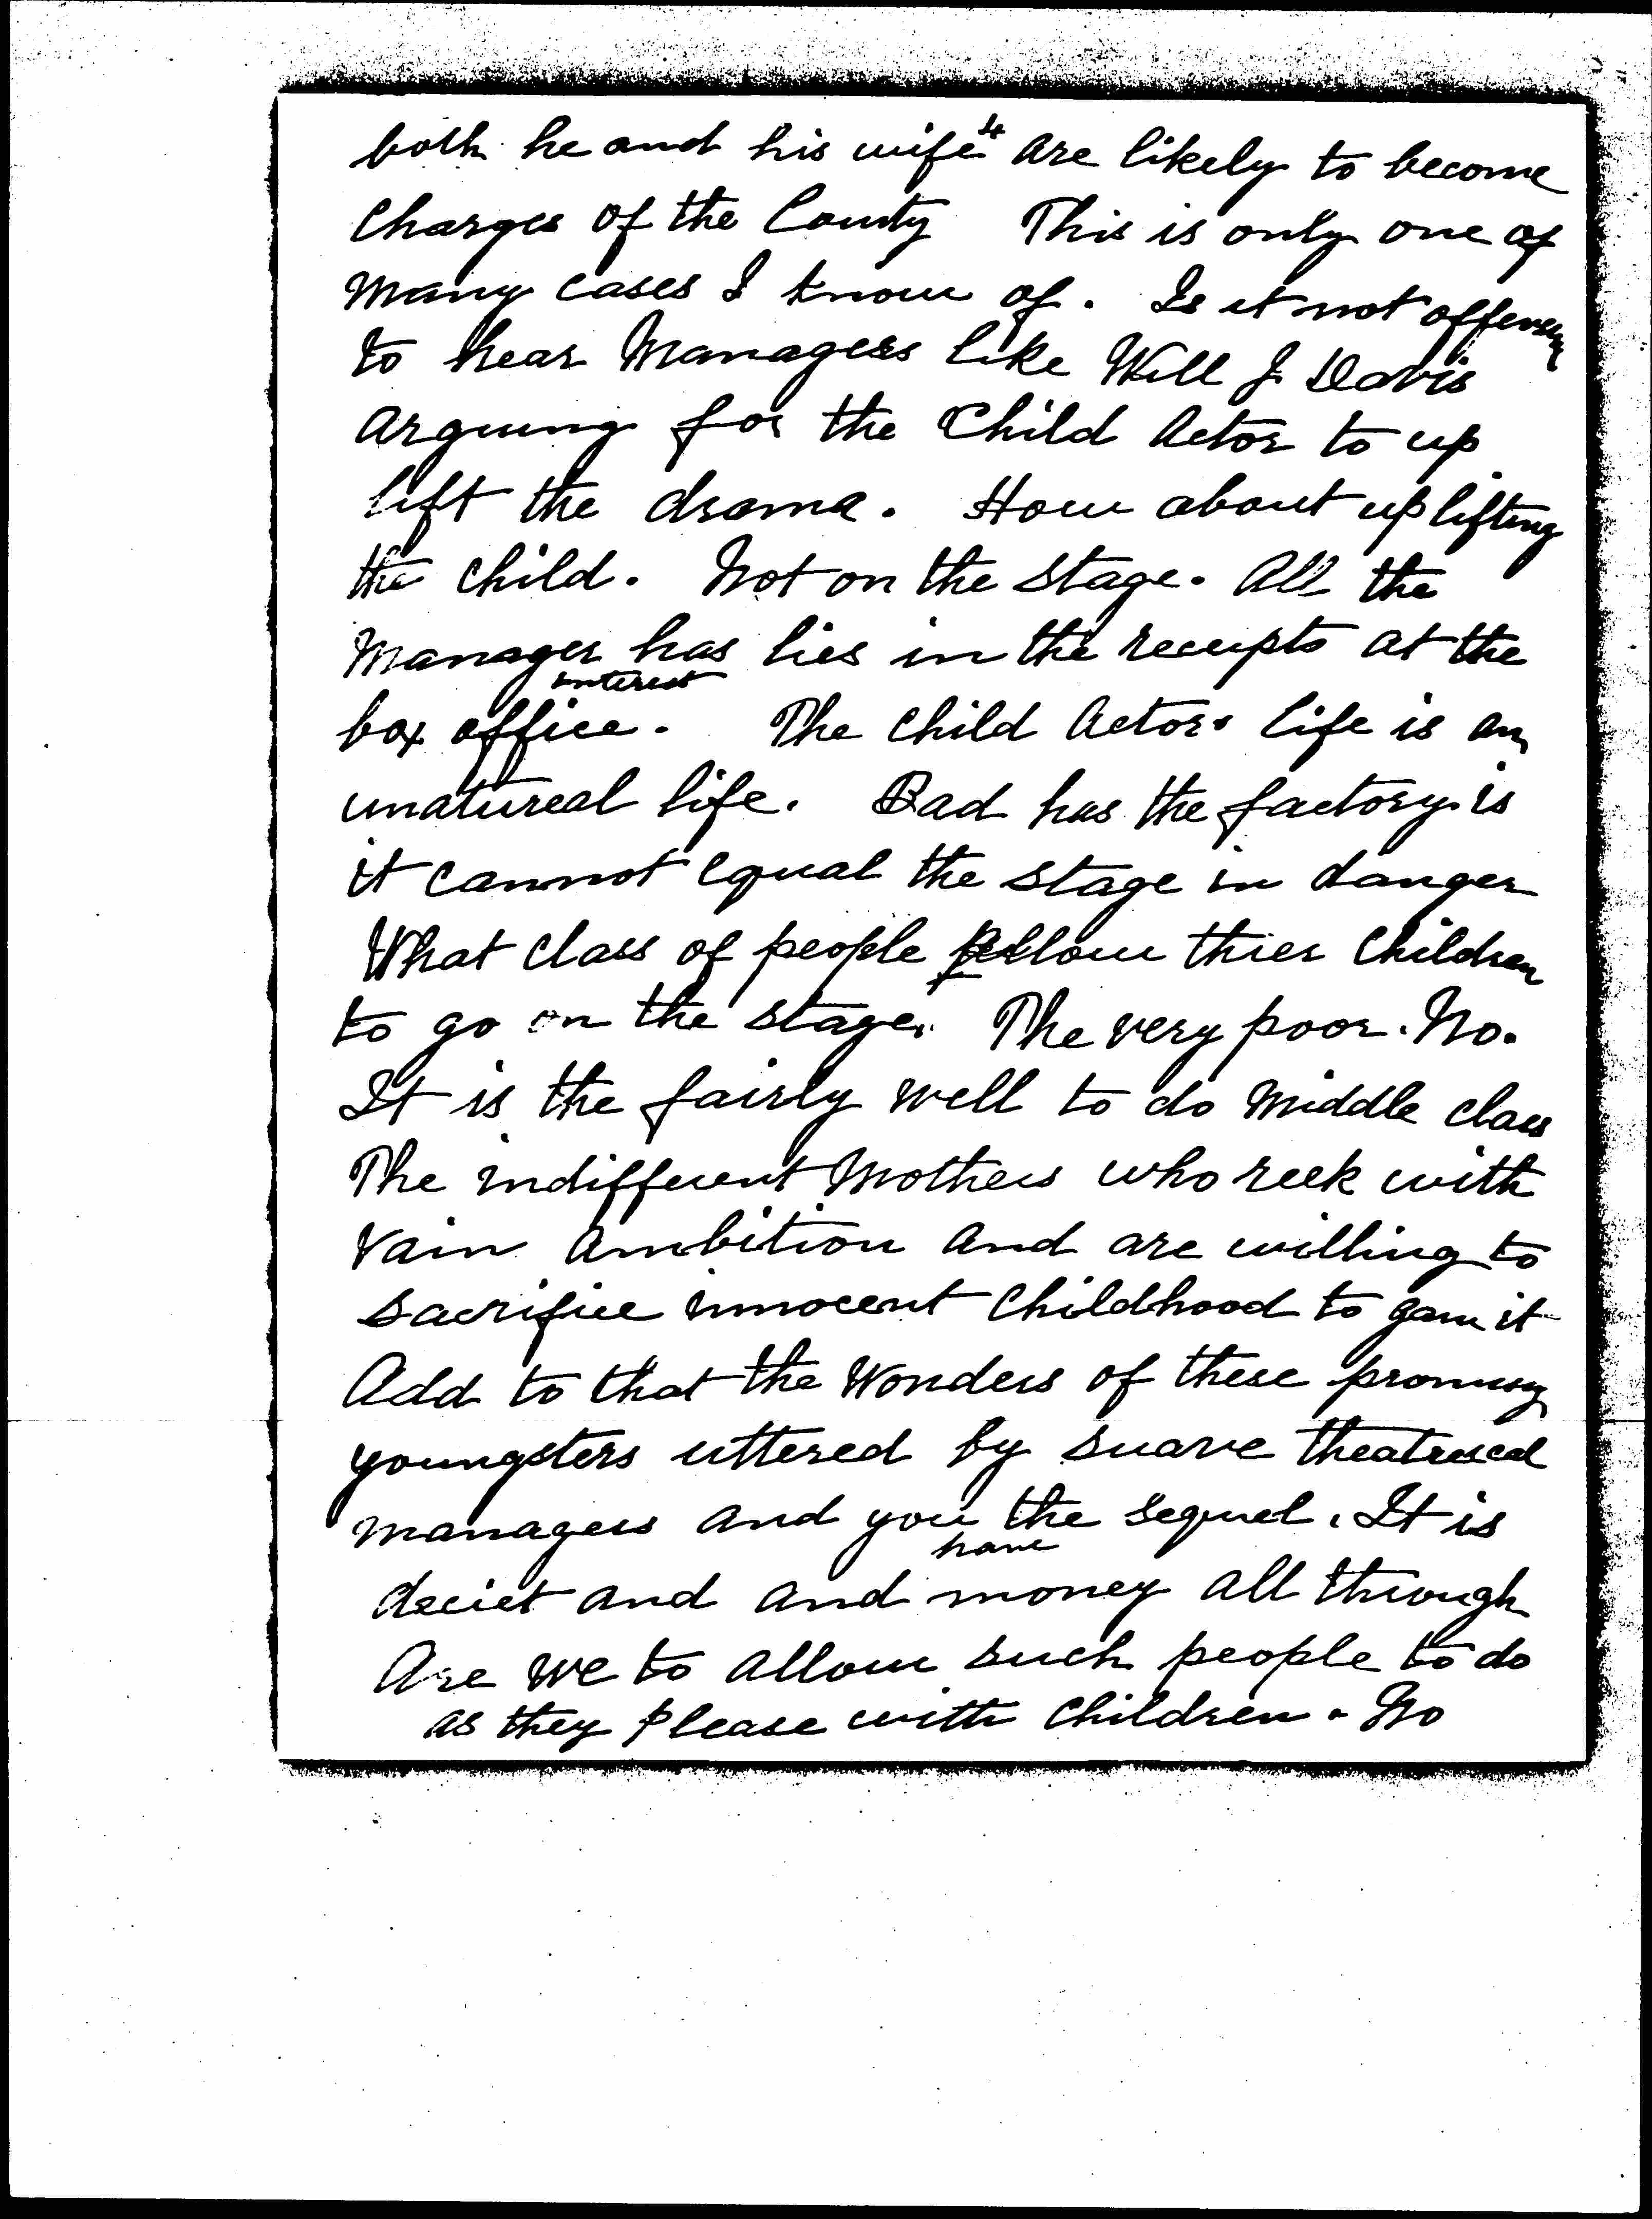 4
both he and his wife are likely to become
Charges of the County This is only one of
many cases I know of. Is it not offensive
to hear Managers like Will J. Davis
arguing for the Child Actor to up
lift the drama. How about uplifting
the child. Not on the stage. All the
Manager has lies in the receipts at the
interest
box office. The child Actors life is an
unatureal life. Bad has the factory is
it cannot equal the stage in danger
What class of people allow thier Children
to go on the stage. The very poor. No.
It is the fairly well to do middle class
The indifferent Mothers who reek with
vain ambition and are willing to
sacrifice innocent Childhood to gain it
Add to that the Wonders of these promising
youngsters uttered by suave theatrical
managers and you the sequel. It is
have
deciet and and money all through
Are we to allow such people to do
as they please with Children. No